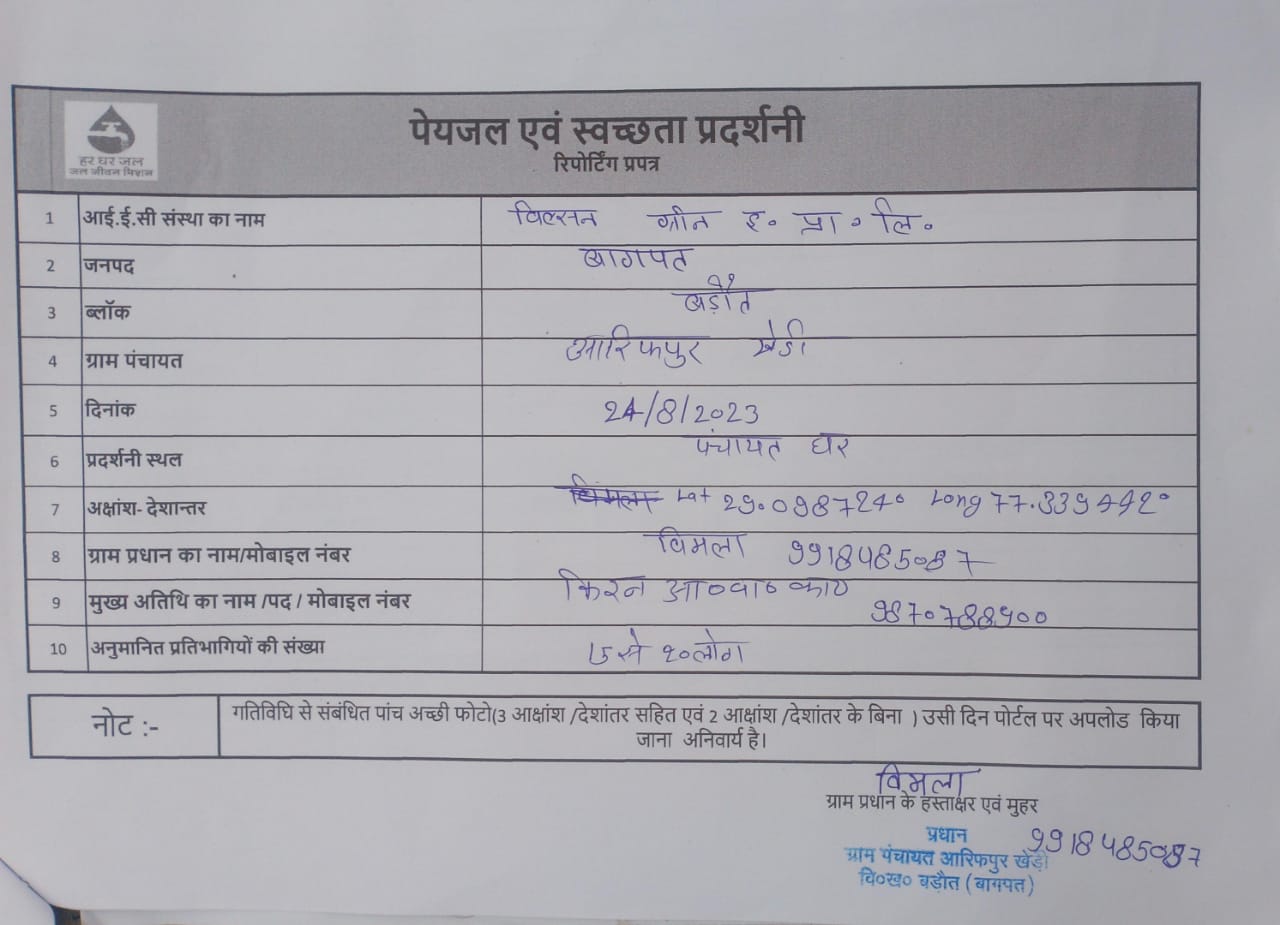 हर घर जल
जल जीवन मिशन
पेयजल एवं स्वच्छता प्रदर्शनी
रिपोर्टिंग प्रपत्र
1 आई.ई.सी संस्था का नाम विल्सन ग्रीन इ० प्रा० लि०
2 जनपद बागपत
3 ब्लॉक बड़ौत
4 ग्राम पंचायत आरिफपुर खेडी
5 दिनांक 24/8/2023
6 प्रदर्शनी स्थल पंचायत घर
7 अक्षांश- देशान्तर Lat 29.098724° Long 77.339442°
8 ग्राम प्रधान का नाम/मोबाइल नंबर विमला
9 मुख्य अतिथि का नाम /पद / मोबाइल नंबर किरन आ०वा० काय
10 अनुमानित प्रतिभागियों की संख्या लोग
नोट :- गतिविधि से संबंधित पांच अच्छी फोटो(3 आक्षांश /देशांतर सहित एवं 2 आक्षांश /देशांतर के बिना ) उसी दिन पोर्टल पर अपलोड किया
जाना अनिवार्य है।
विमला
ग्राम प्रधान के हस्ताक्षर एवं मुहर
प्रधान
ग्राम पंचायत आरिफपुर खेड़ी
वि०ख० बड़ौत (बागपत)